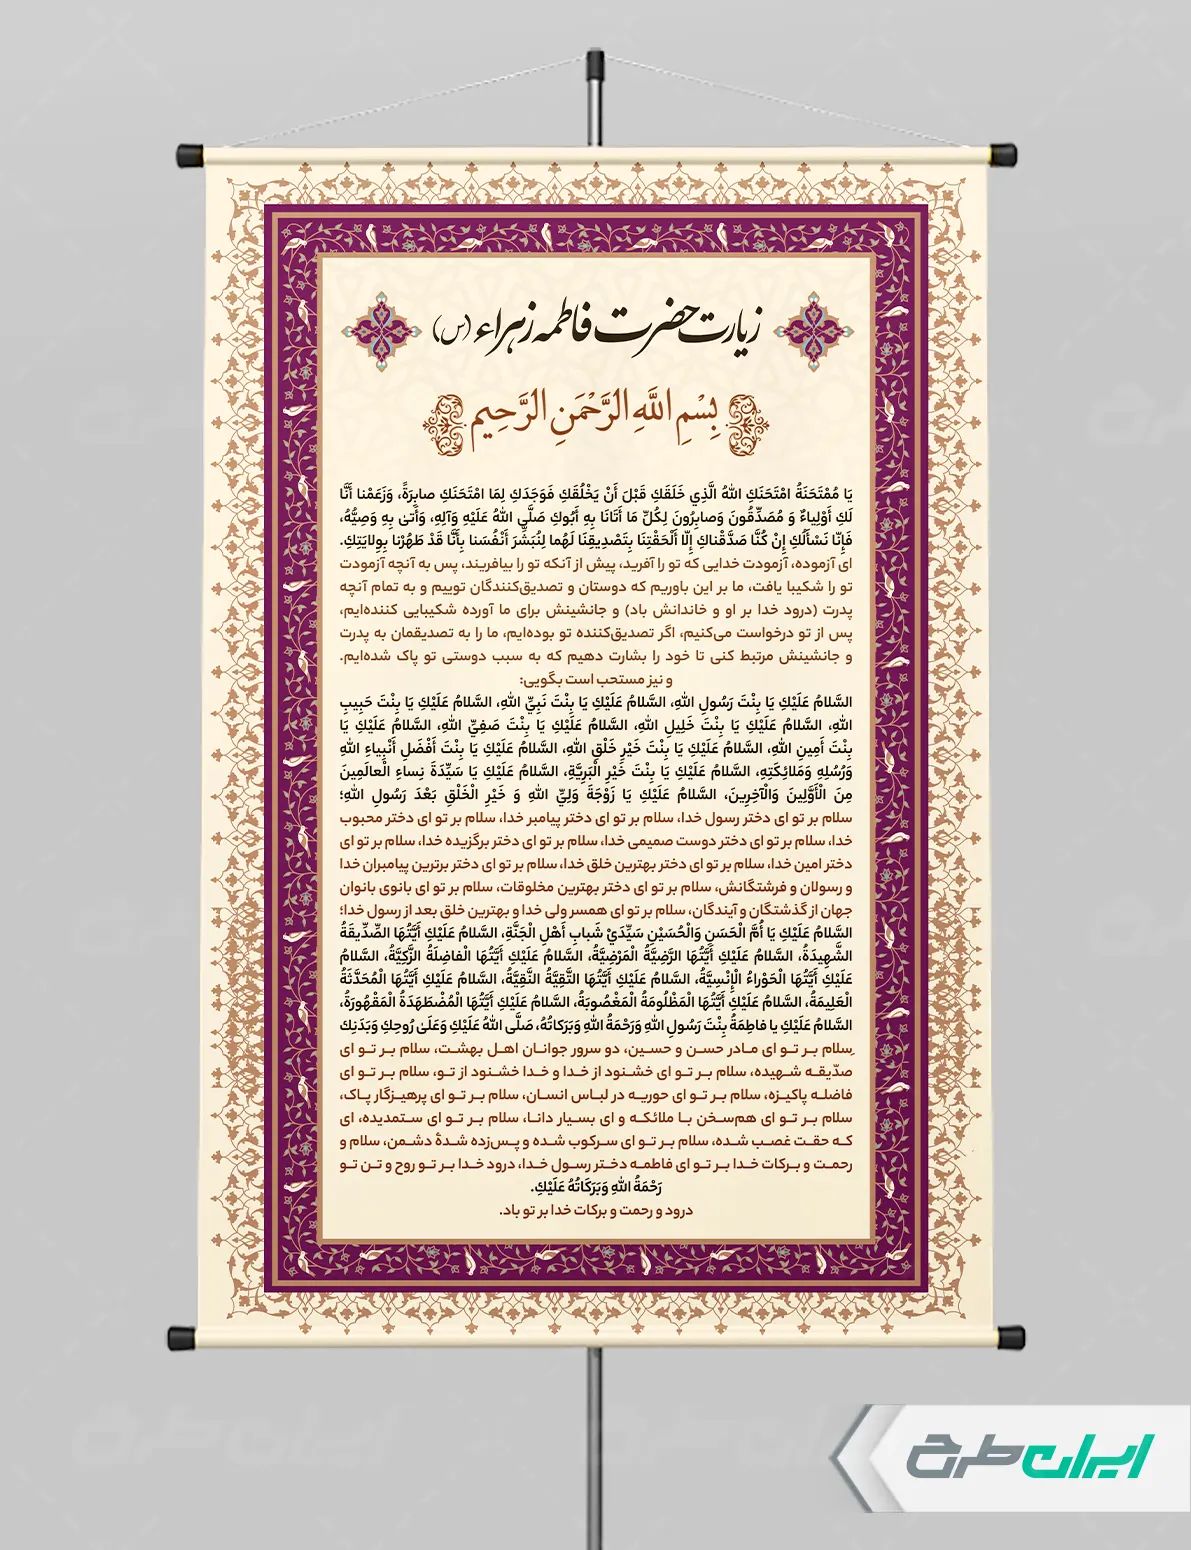 زیارت حضرت فاطمه زهراء (س)
بِسْمِ اللَّهِ الرَّحْمَنِ الرَّحِیمِ
یَا مُمْتَحَنَةُ امْتَحَنَكِ اللهُ الَّذِي خَلَقَكِ قَبْلَ أَنْ يَخْلُقَكِ فَوَجَدَكِ لِمَا امْتَحَنَكِ صابِرَةً، وَزَعَمْنا أَنَّا
لَكِ أَوْلِياءُ وَ مُصَدِّقُونَ وَصابِرُونَ لِكُلِّ مَا أَتَانَا بِهِ أَبُوكِ صَلَّى اللهُ عَلَيْهِ وَآلِهِ، وَأَتىٰ بِهِ وَصِيُّهُ،
فَإِنّا نَسْأَلُكِ إِنْ كُنَّا صَدَّقْناكِ إِلّا أَلْحَقْتِنَا بِتَصْدِيقِنَا لَهُما لِنُبَشِّرَ أَنْفُسَنا بِأَنَّا قَدْ طَهُرْنا بِوِلايَتِكِ.
ای آزموده، آزمودت خدایی که تو را آفرید، پیش از آنکه تو را بیافریند، پس به آنچه آزمودت
تو را شکیبا یافت، ما بر این باوریم که دوستان و تصدیق‌کنندگان توییم و به تمام آنچه
پدرت (درود خدا بر او و خاندانش باد) و جانشینش برای ما آورده شکیبایی کننده‌ایم،
پس از تو درخواست می‌کنیم، اگر تصدیق‌کننده تو بوده‌ایم، ما را به تصدیقمان به پدرت
و جانشینش مرتبط کنی تا خود را بشارت دهیم که به سبب دوستی تو پاک شده‌ایم.
و نیز مستحب است بگویی:
السَّلامُ عَلَيْكِ يَا بِنْتَ رَسُولِ اللهِ، السَّلامُ عَلَيْكِ يَا بِنْتَ نَبِيِّ اللهِ، السَّلامُ عَلَيْكِ يَا بِنْتَ حَبِيبِ
اللهِ، السَّلامُ عَلَيْكِ يَا بِنْتَ خَلِيلِ اللهِ، السَّلامُ عَلَيْكِ يَا بِنْتَ صَفِيِّ اللهِ، السَّلامُ عَلَيْكِ يَا
بِنْتَ أَمِينِ اللهِ، السَّلامُ عَلَيْكِ يَا بِنْتَ خَيْرِ خَلْقِ اللهِ، السَّلامُ عَلَيْكِ يَا بِنْتَ أَفْضَلِ أَنْبِياءِ اللهِ
وَرُسُلِهِ وَمَلائِكَتِهِ، السَّلامُ عَلَيْكِ يَا بِنْتَ خَيْرِ الْبَرِيَّةِ، السَّلامُ عَلَيْكِ يَا سَيِّدَةَ نِساءِ الْعالَمِينَ
مِنَ الْأَوَّلِينَ وَالْآخِرِينَ، السَّلامُ عَلَيْكِ يَا زَوْجَةَ وَلِيِّ اللهِ وَ خَيْرِ الْخَلْقِ بَعْدَ رَسُولِ اللهِ؛
سلام بر تو ای دختر رسول خدا، سلام بر تو ای دختر پیامبر خدا، سلام بر تو ای دختر محبوب
خدا، سلام بر تو ای دختر دوست صمیمی خدا، سلام بر تو ای دختر برگزیده خدا، سلام بر تو ای
دختر امین خدا، سلام بر تو ای دختر بهترین خلق خدا، سلام بر تو ای دختر برترین پیامبران خدا
و رسولان و فرشتگانش، سلام بر تو ای دختر بهترین مخلوقات، سلام بر تو ای بانوی بانوان
جهان از گذشتگان و آیندگان، سلام بر تو ای همسر ولی خدا و بهترین خلق بعد از رسول خدا؛
السَّلامُ عَلَيْكِ يَا أُمَّ الْحَسَنِ وَالْحُسَيْنِ سَيِّدَيْ شَبابِ أَهْلِ الْجَنَّةِ، السَّلامُ عَلَيْكِ أَيَّتُهَا الصِّدِّيقَةُ
الشَّهِيدَةُ، السَّلامُ عَلَيْكِ أَيَّتُهَا الرَّضِيَّةُ الْمَرْضِيَّةُ، السَّلامُ عَلَيْكِ أَيَّتُهَا الْفاضِلَةُ الزَّكِيَّةُ، السَّلامُ
عَلَيْكِ أَيَّتُهَا الْحَوْراءُ الْإِنْسِيَّةُ، السَّلامُ عَلَيْكِ أَيَّتُهَا التَّقِيَّةُ النَّقِيَّةُ، السَّلامُ عَلَيْكِ أَيَّتُهَا الْمُحَدَّثَةُ
الْعَلِيمَةُ، السَّلامُ عَلَيْكِ أَيَّتُهَا الْمَظْلُومَةُ الْمَغْصُوبَةُ، السَّلامُ عَلَيْكِ أَيَّتُهَا الْمُضْطَهَدَةُ الْمَقْهُورَةُ،
السَّلامُ عَلَيْكِ يا فاطِمَةُ بِنْتَ رَسُولِ اللهِ وَرَحْمَةُ اللهِ وَبَرَكاتُهُ، صَلَّى اللهُ عَلَيْكِ وَعَلَىٰ رُوحِكِ وَبَدَنِك
ِسلام بر تو ای مادر حسن و حسین، دو سرور جوانان اهل بهشت، سلام بر تو ای
صدّیقه شهیده، سلام بر تو ای خشنود از خدا و خدا خشنود از تو، سلام بر تو ای
فاضله پاکیزه، سلام بر تو ای حوریه در لباس انسان، سلام بر تو ای پرهیزگار پاک،
سلام بر تو ای هم‌سخن با ملائکه و ای بسیار دانا، سلام بر تو ای ستمدیده، ای
که حقت غصب شده، سلام بر تو ای سرکوب شده و پس‌زده شدهٔ دشمن، سلام و
رحمت و برکات خدا بر تو ای فاطمه دختر رسول خدا، درود خدا بر تو روح و تن تو
رَحْمَةُ اللهِ وَبَرَكَاتُهُ عَلَيْكِ.
درود و رحمت و برکات خدا بر تو باد.
ایران طرح